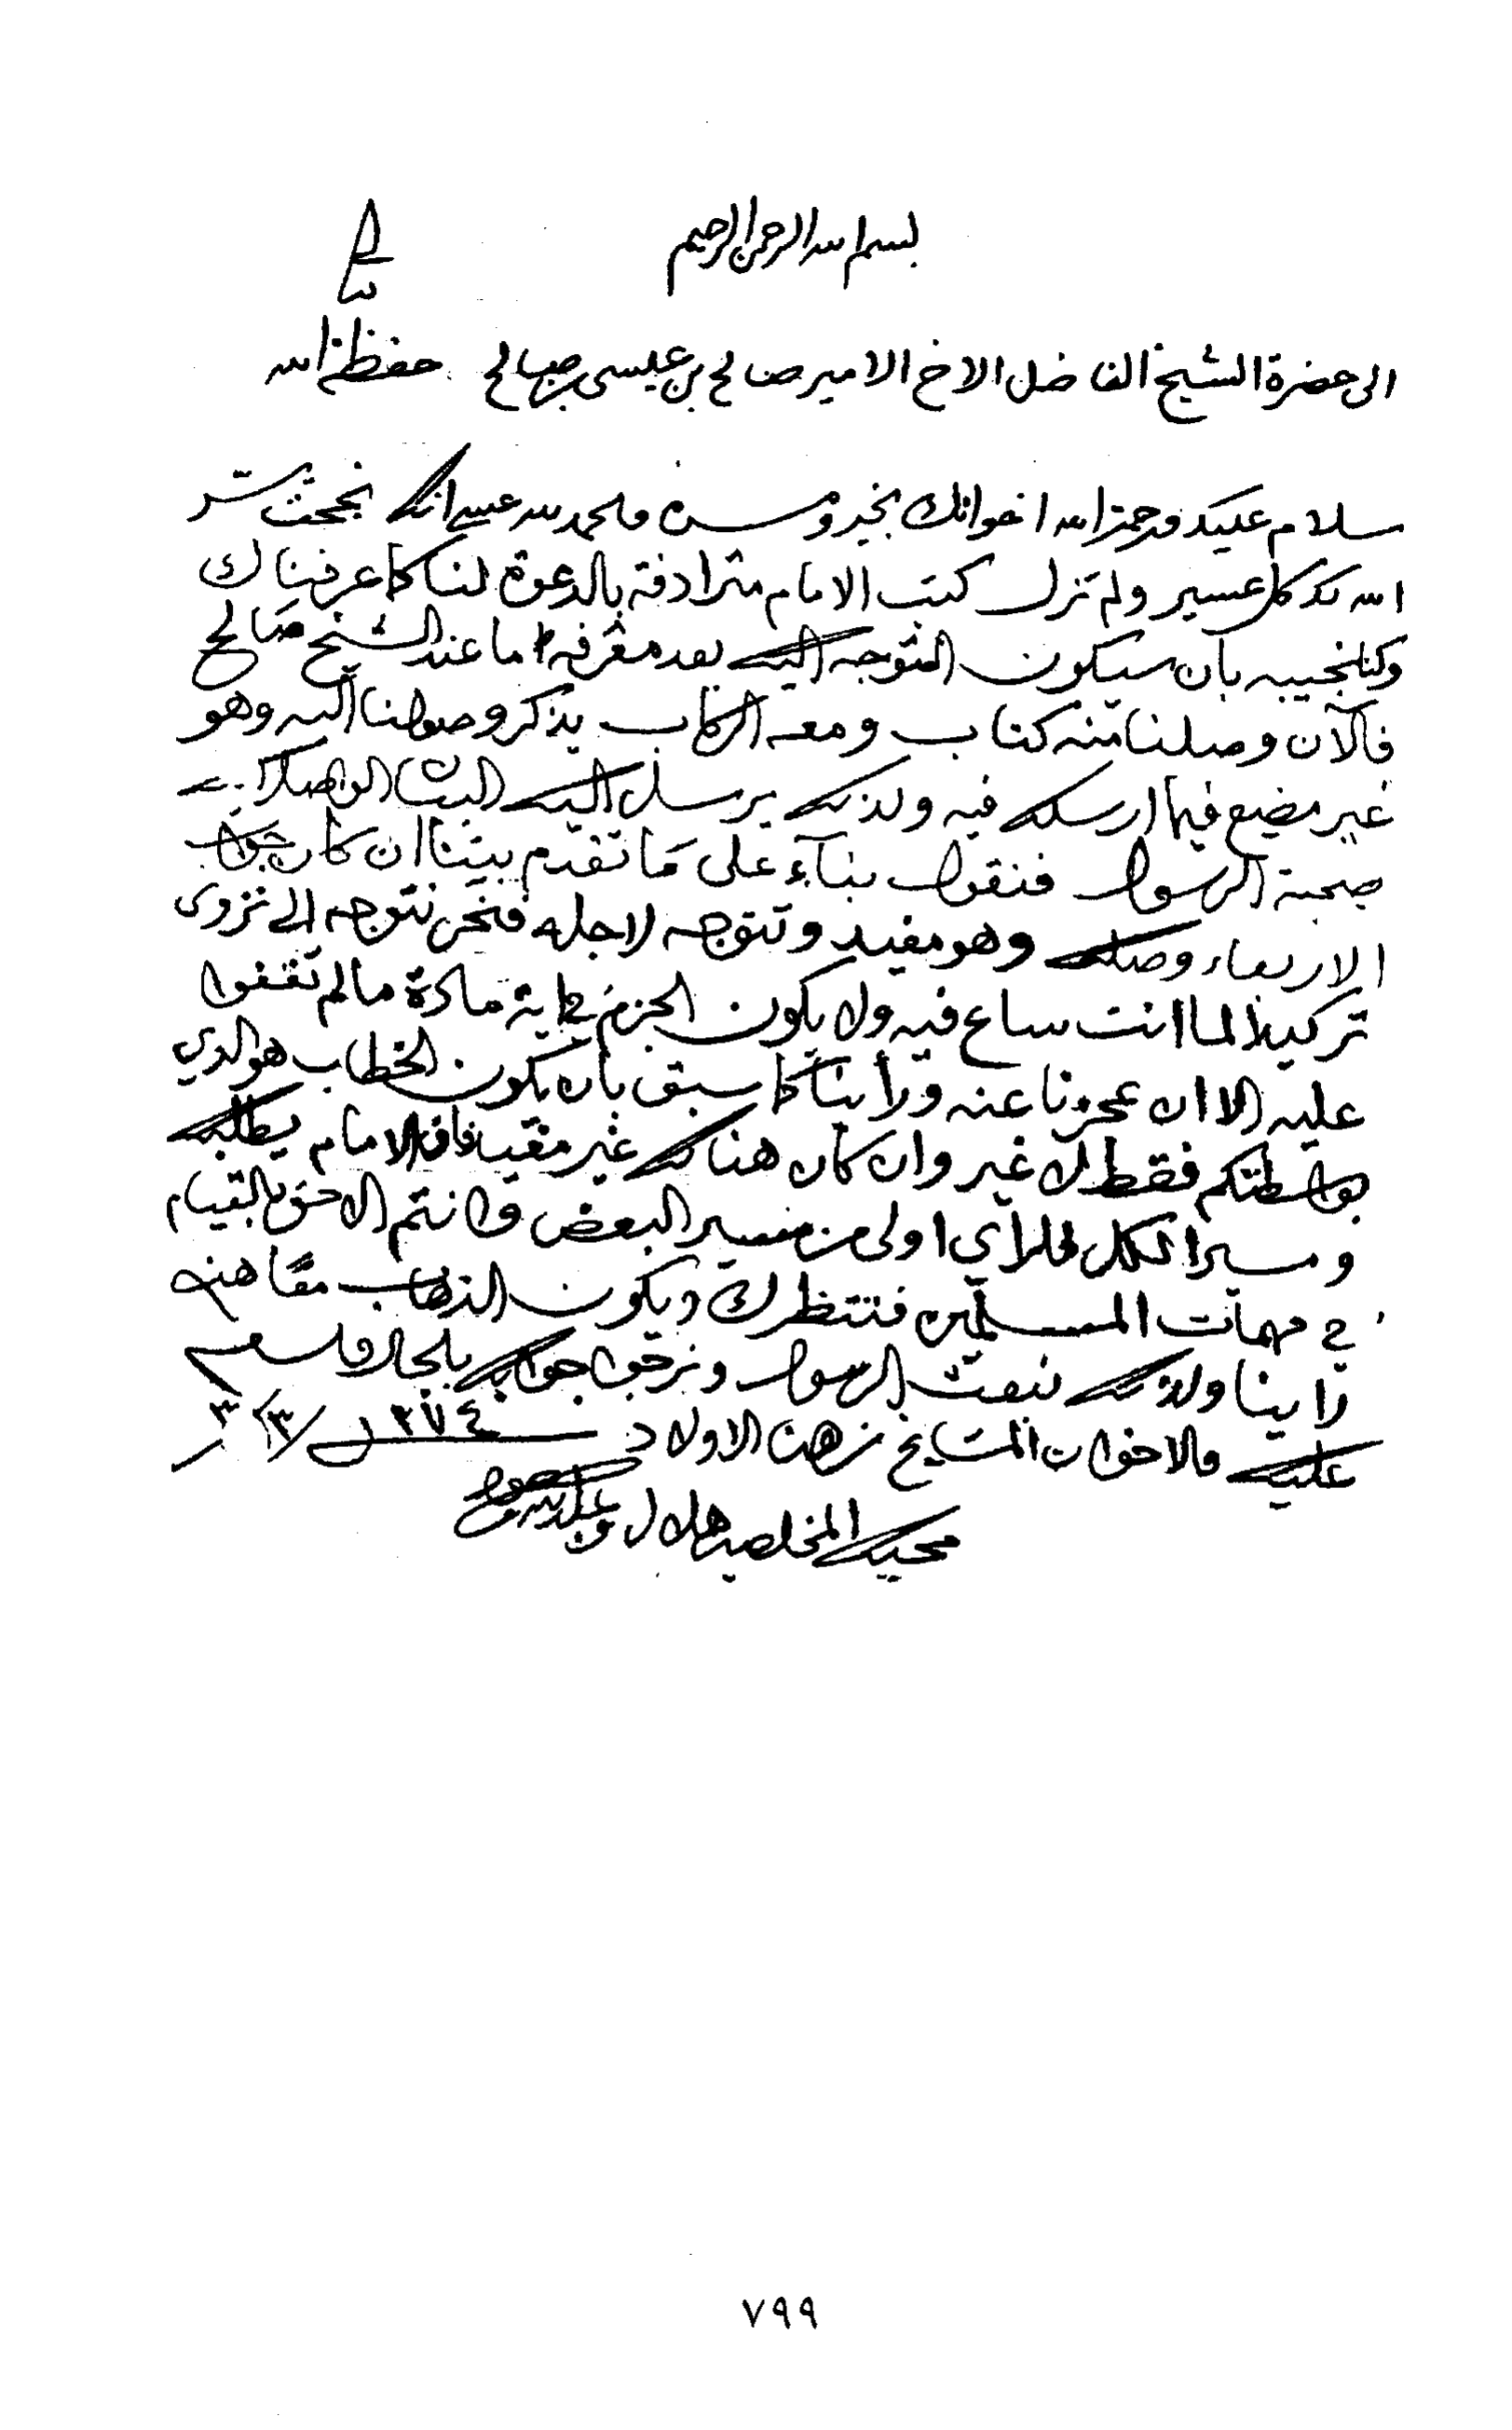 بسم الله الرحمن الرحيم
الى حضرة الشيخ الفاضل الاخ الامير صالح بن عيسى بن صالح حفظه الله
سلام عليك ورحمة الله اخوانك بخير ومسرة والحمد لله عسى انك نجحت يسر
الله لك كل عسير ولم تزل كتب الامام مترادفة بالدعوة لنا كما عرفناك
وكنا نجيبه بأن سيكون التوجه اليك بعد معرفة ما عند الشيخ صالح
فالآن وصلنا منه كتاب ومعه الركاب يذكر وصولنا اليه وهو
غير مضيع فيما ارسلك فيه ولذلك يرسل اليك
صحبة الرسول فنقول بناء على ما تقدم بيننا ان كان جواب
الاربعاء وصلك وهو مفيد وتتوجه لاجله فنحن نتوجه الى نزوى
تركيدا لما انت ساع فيه ولا يكون الجزم في اية مادة ما لم تقفوا
عليه الا ان عجزنا عنه ورأينا كما سبق بأن يكون الخطاب هو الذي
بواسطتكم فقط لا غير وان كان هناك غير مقيد فان الامام يطلبك
ومسير الكل للرأي اولى من مسير البعض وانتم الاحق بالقيام
في مهمات المسلمين فننتظرك ويكون الذهاب معا هذه
رأينا ولذلك نبعث الرسول ونرجو جوابك بالحال والسلام
عليك والاخوان المشايخ من هنا الاولاد ١٣٧٤/٣/٣
محبيك المخلصين هلال وعبدالله
٧٩٩